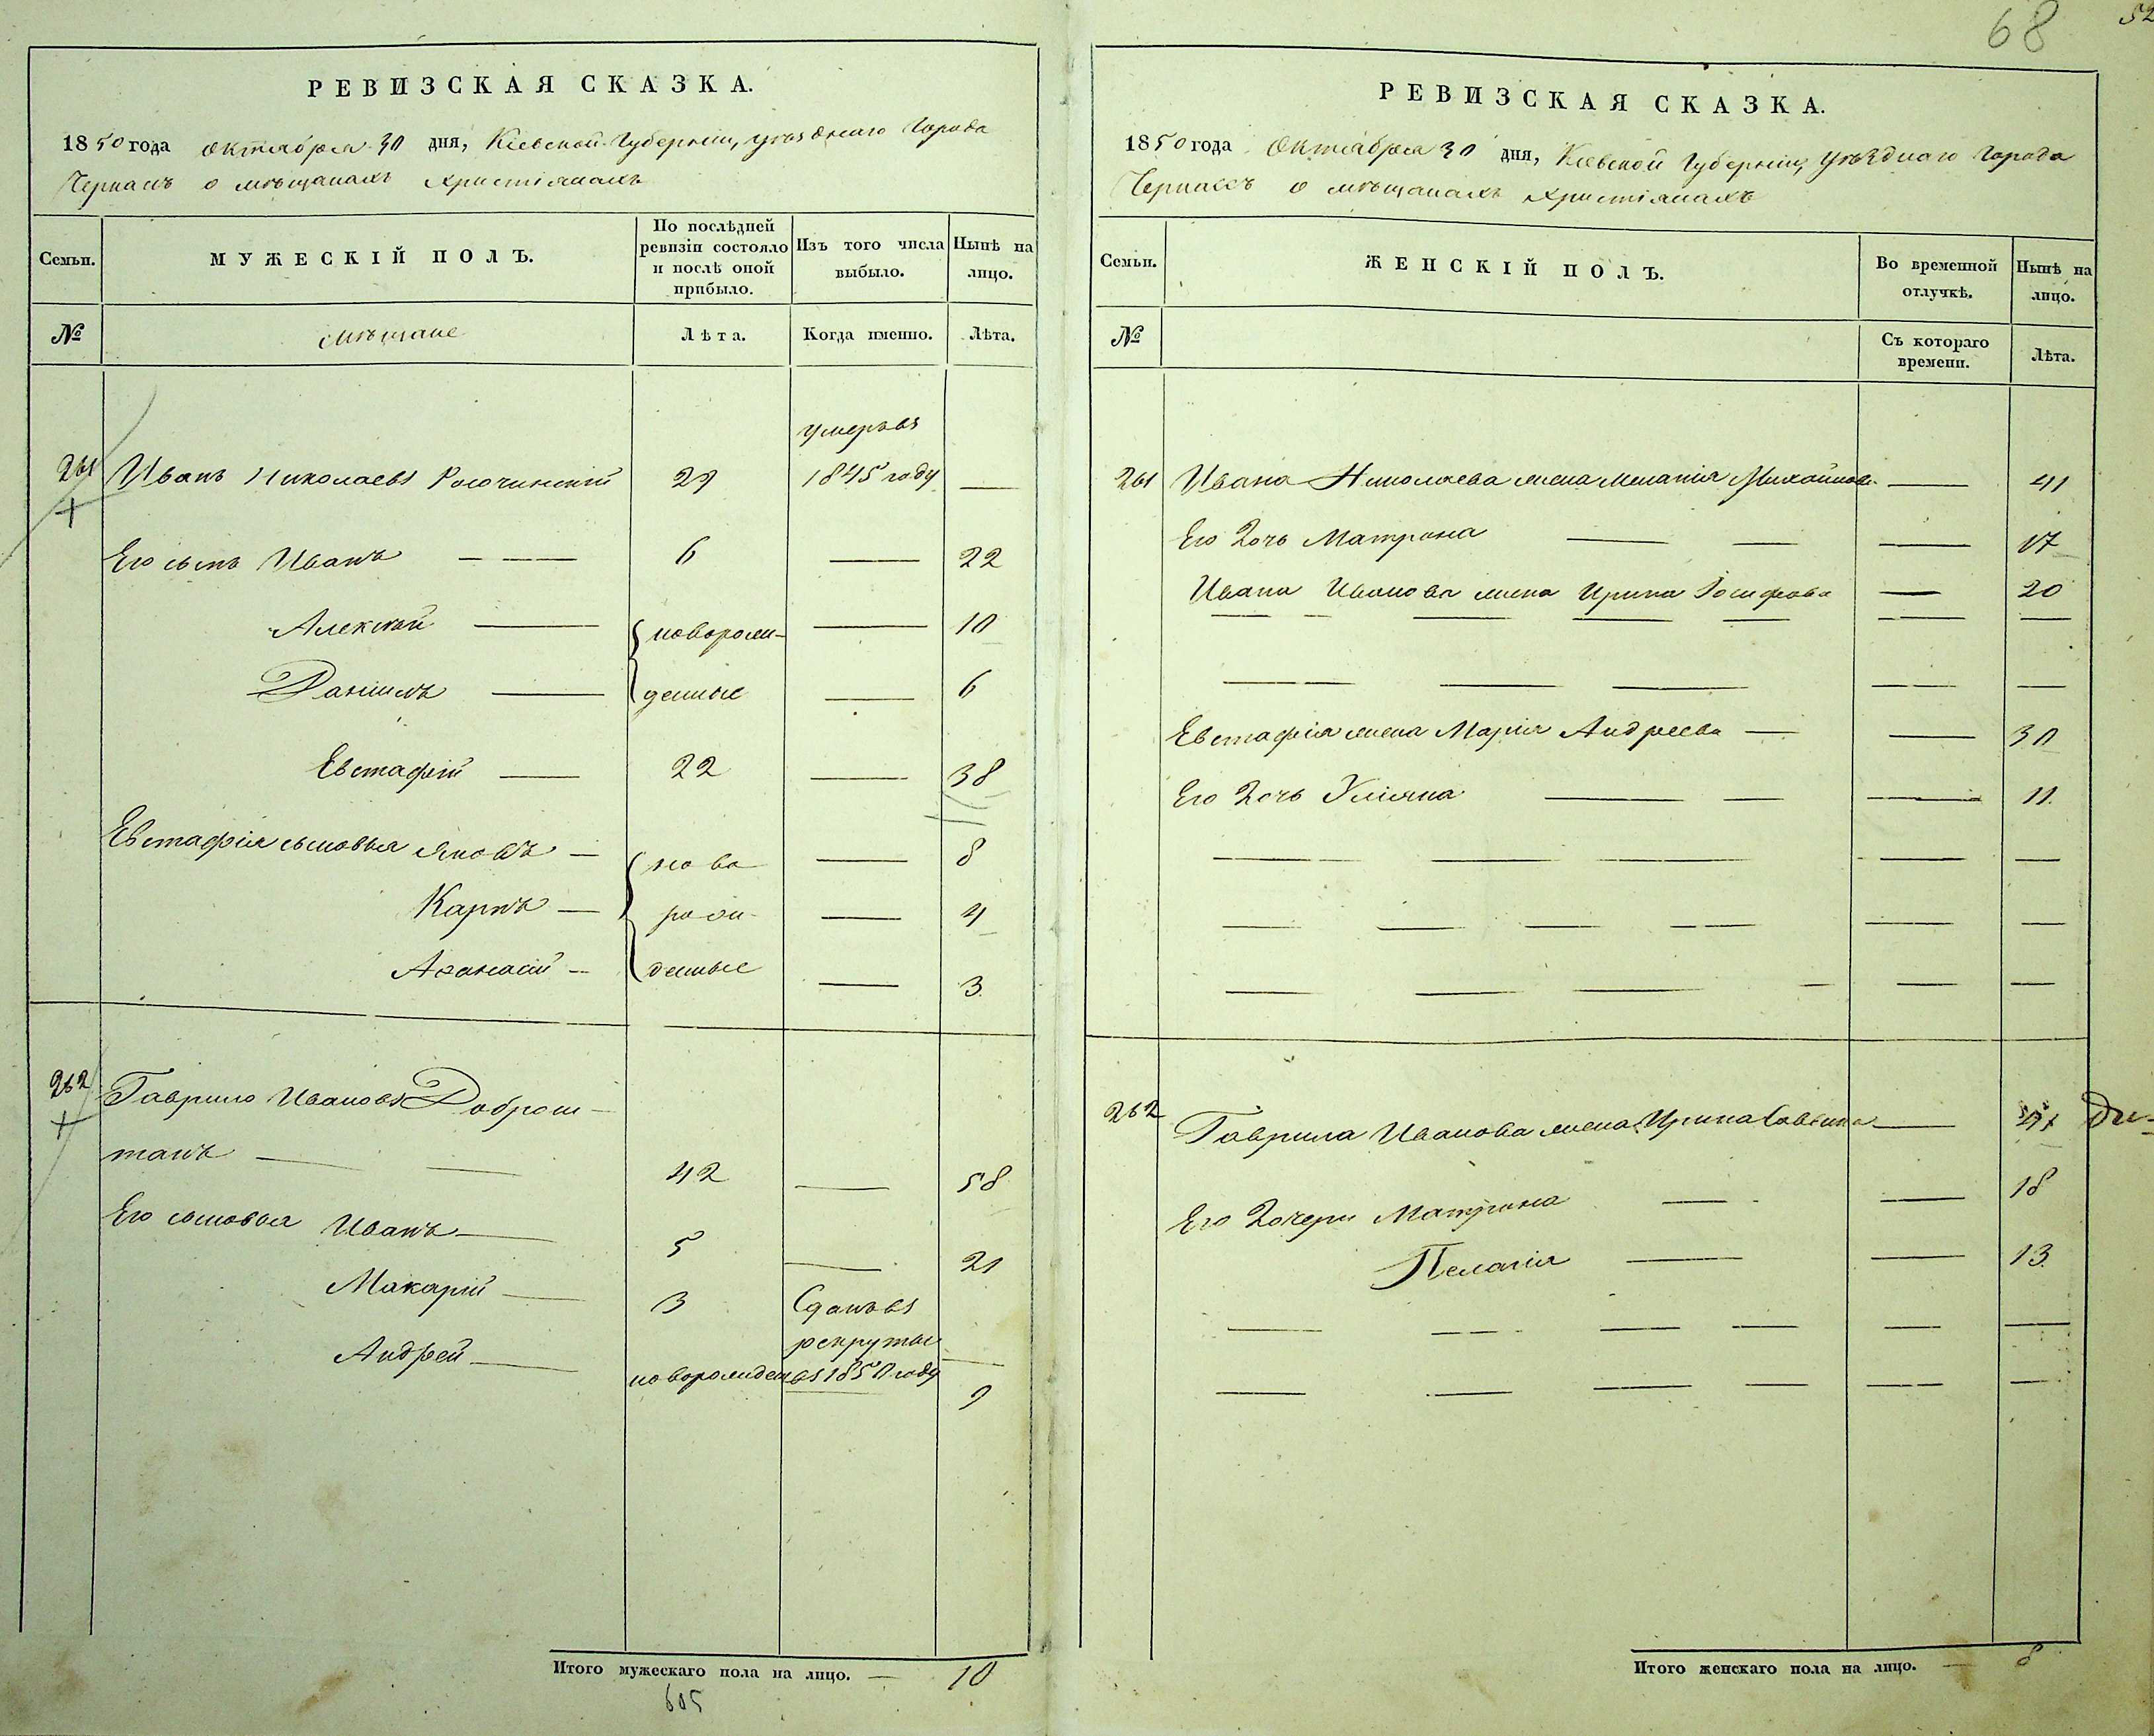 68
52
РЕВИЗСКАЯ СКАЗКА.
1850 года Октября 30 дня, Кіевской Губерніи, уѣзднаго Города
Черкасъ о мѣщанахъ христіянахъ
Семьи. МУЖЕСКІЙ ПОЛЪ. По послѣдней ревизіи состояло и послѣ оной прибыло. Изъ того числа выбыло. Нынѣ на лицо.
№ мѣщане Лѣта. Когда именно. Лѣта.
умеръ въ
261 Иванъ Николаевъ 29 1845 году —
Его сынъ Иванъ — — 6 — 22
Алексѣй — новорож- — 10
Даніилъ — денные — 6
Евстафій — 22 — 38
Евстафія сыновья Яковъ — ново — 8
Карпъ — рож- — 4
Афанасій — денные — 3
262 Гаврило Ивановъ Доброш-
танъ — — 42 — 58
Его сыновья Иванъ — 5 — 21
Макарій — 3 Сданъ въ
рекруты
въ 1850 году —
Андрей — новорожден — 9
Итого мужескаго пола на лицо. — 10
605
РЕВИЗСКАЯ СКАЗКА.
1850 года Октября 30 дня, Кіевской Губерніи, уѣзднаго Города
Черкасъ о мѣщанахъ христіянахъ
Семьи. ЖЕНСКІЙ ПОЛЪ. Во временной отлучкѣ. Нынѣ на лицо.
№ Съ котораго времени. Лѣта.
261 Ивана Николаева жена Меланія Михайлова — 41
Его дочь Матрона — — — 17
Ивана Иванова жена Ирина Іосифова — 20
Евстафія жена Марія Андреева — — 30
Его дочь Уліяна — — — 11
262 Гаврила Ивановa жена Ирина Саввина —
Его дочери Матрона — — 18
Пелагія — — 13
Итого женскаго пола на лицо. — 8